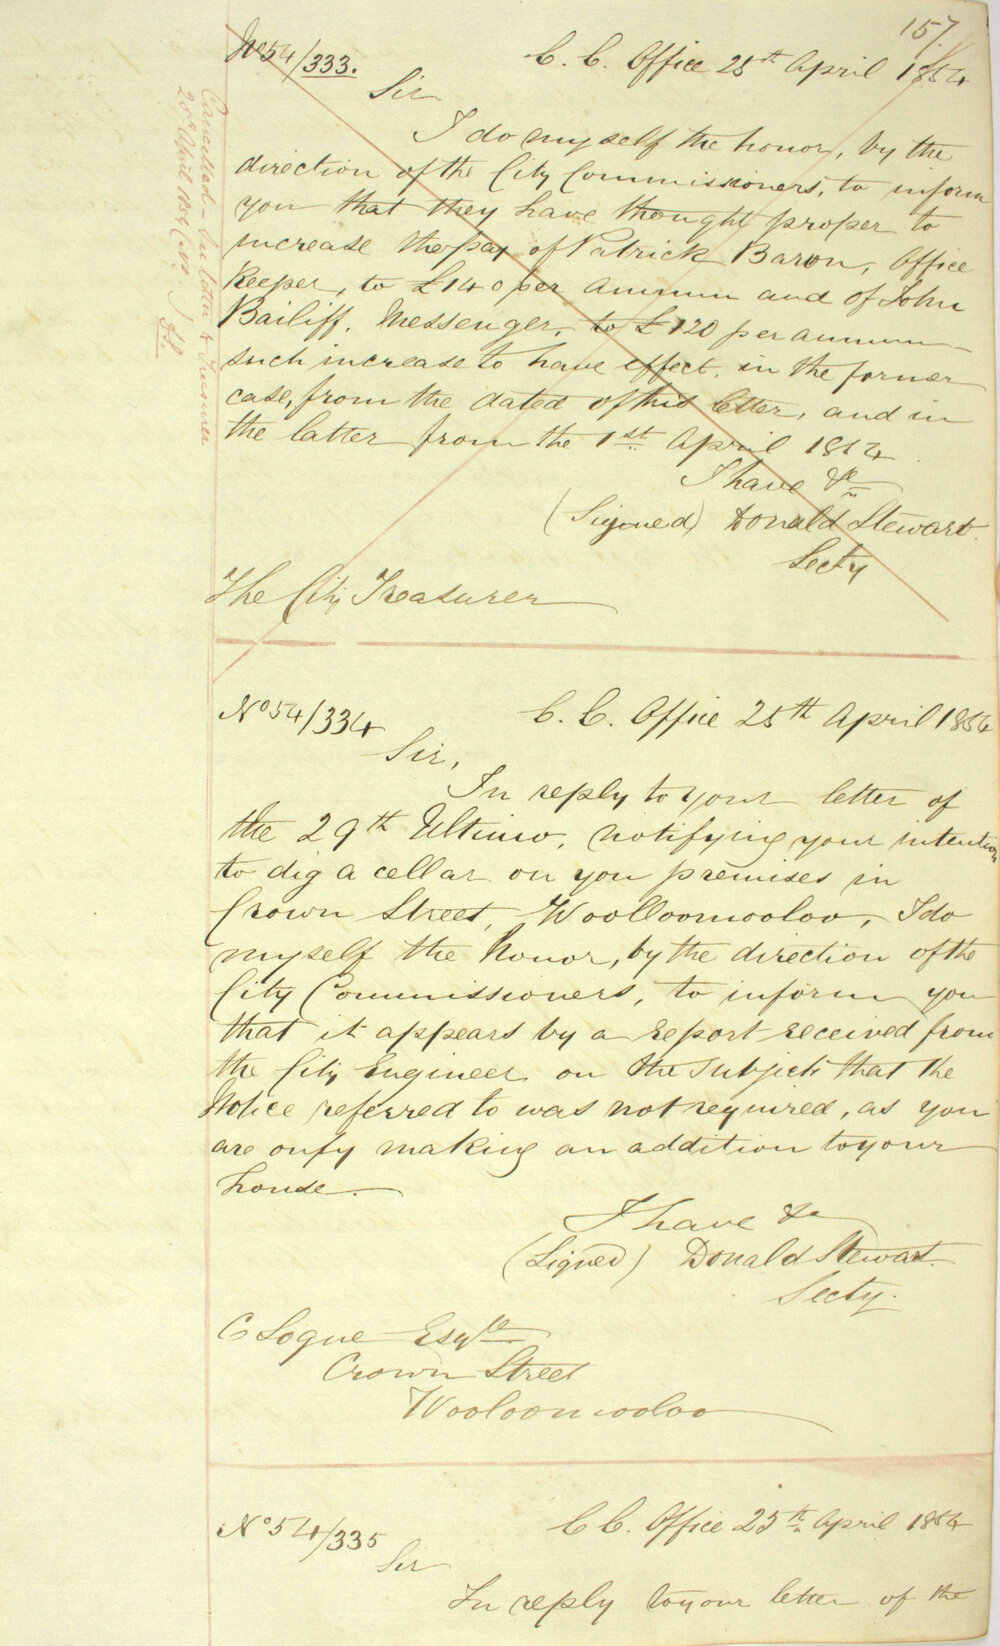 157
No 54/333.
C. C. Office 25th April 1854
Sir
I do myself the honor, by the
direction of the City Commissioners, to inform
you that they have thought proper to
increase the pay of Patrick Baron, Office
Keeper, to £140 per annum and of John
Bailiff, Messenger, to £120 per annum
such increase to have effect, in the former
case, from the dated of this letter, and in
the latter from the 1st April 1854
I have &c
(Signed) Donald Stewart.
Secty
The City Treasurer
Cancelled - letter to Treasurer
April 1854
No 54/334
C. C. Office 25th April 1854
Sir,
In reply to your letter of
the 29th Ultimo, notifying your intention
to dig a cellar on you premises in
Crown Street, Woolloomooloo, I do
myself the Honor, by the direction of the
City Commissioners, to inform you
that it appears by a report received from
the City Engineer on the subject that the
Notice referred to was not required, as you
are only making an addition to your
house.
I have &c
(Signed) Donald Stewart.
Secty.
C Logue Esqre
Crown Street
Wooloomooloo
No 54/335
C C. Office 25th April 1854
Sir
In reply to your letter of the